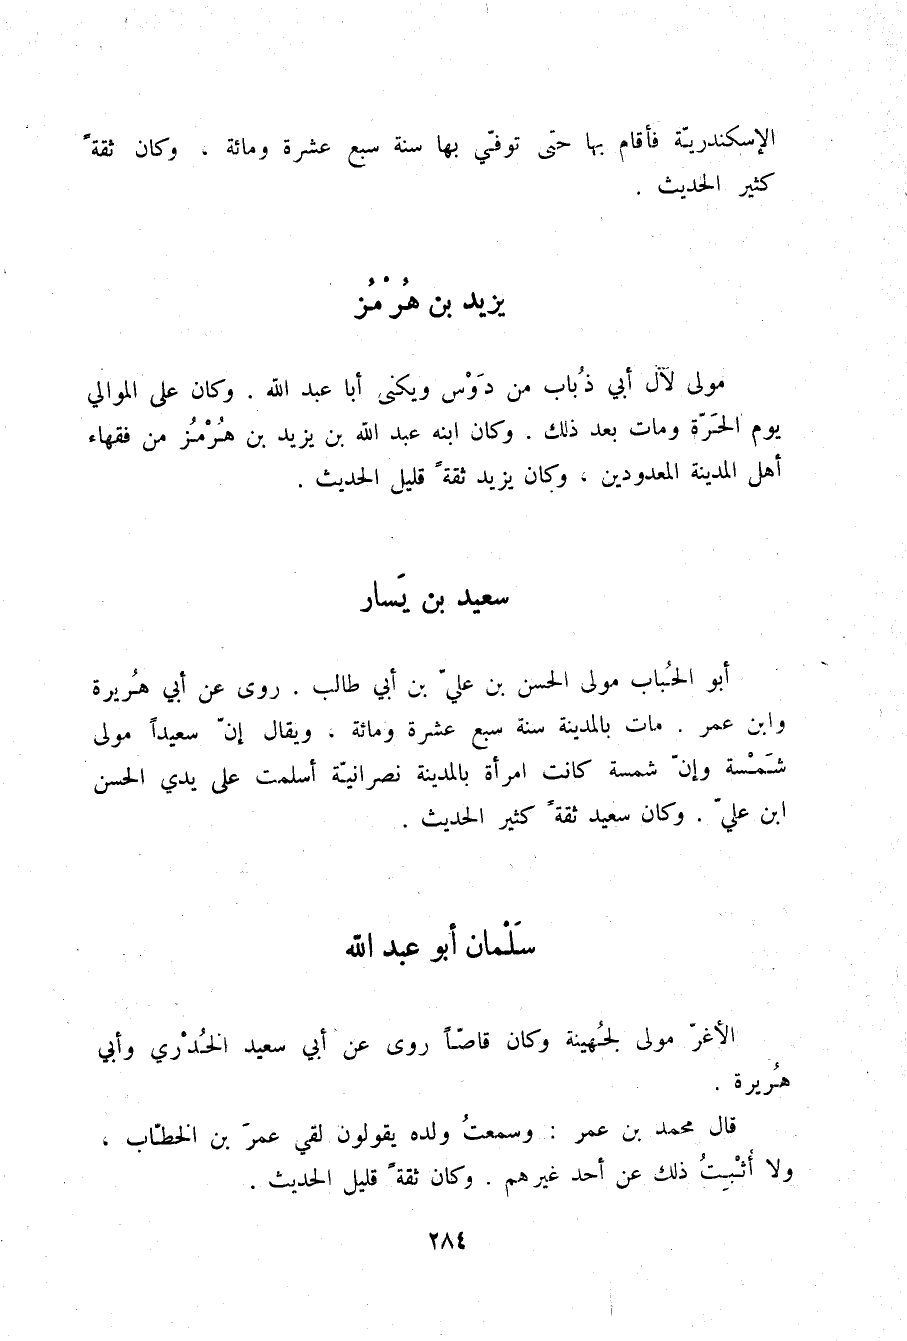 الإسكندريّة فأقام بها حتّى توفّي بها سنة سبع عشرة ومائة . وكان ثقةً
كثير الحديث .
يزيد بن هُرْمُز
مولى لآل أبي ذُباب من دَوْس ويكنى أبا عبد الله . وكان على الموالي
يوم الحَرّة ومات بعد ذلك . وكان ابنه عبد الله بن يزيد بن هُرْمُز من فقهاء
أهل المدينة المعدودين ، وكان يزيد ثقةً قليل الحديث .
سعيد بن يَسار
أبو الحُباب مولى الحسن بن عليّ بن أبي طالب . روى عن أبي هُريرة
وابن عمر . مات بالمدينة سنة سبع عشرة ومائة ، ويقال إنّ سعيداً مولى
شَمْسة وإنّ شمسة كانت امرأة بالمدينة نصرانيّة أسلمت على يدي الحسن
ابن عليّ . وكان سعيد ثقةً كثير الحديث .
سَلْمان أبو عبد الله
الأغرّ مولى لجُهينة وكان قاصّاً روى عن أبي سعيد الخُدْري وأبي
هُريرة .
قال محمد بن عمر : وسمعتُ ولده يقولون لقي عمرَ بن الخطّاب ،
ولا أُثْبِتُ ذلك عن أحد غيرهم . وكان ثقةً قليل الحديث .
٢٨٤